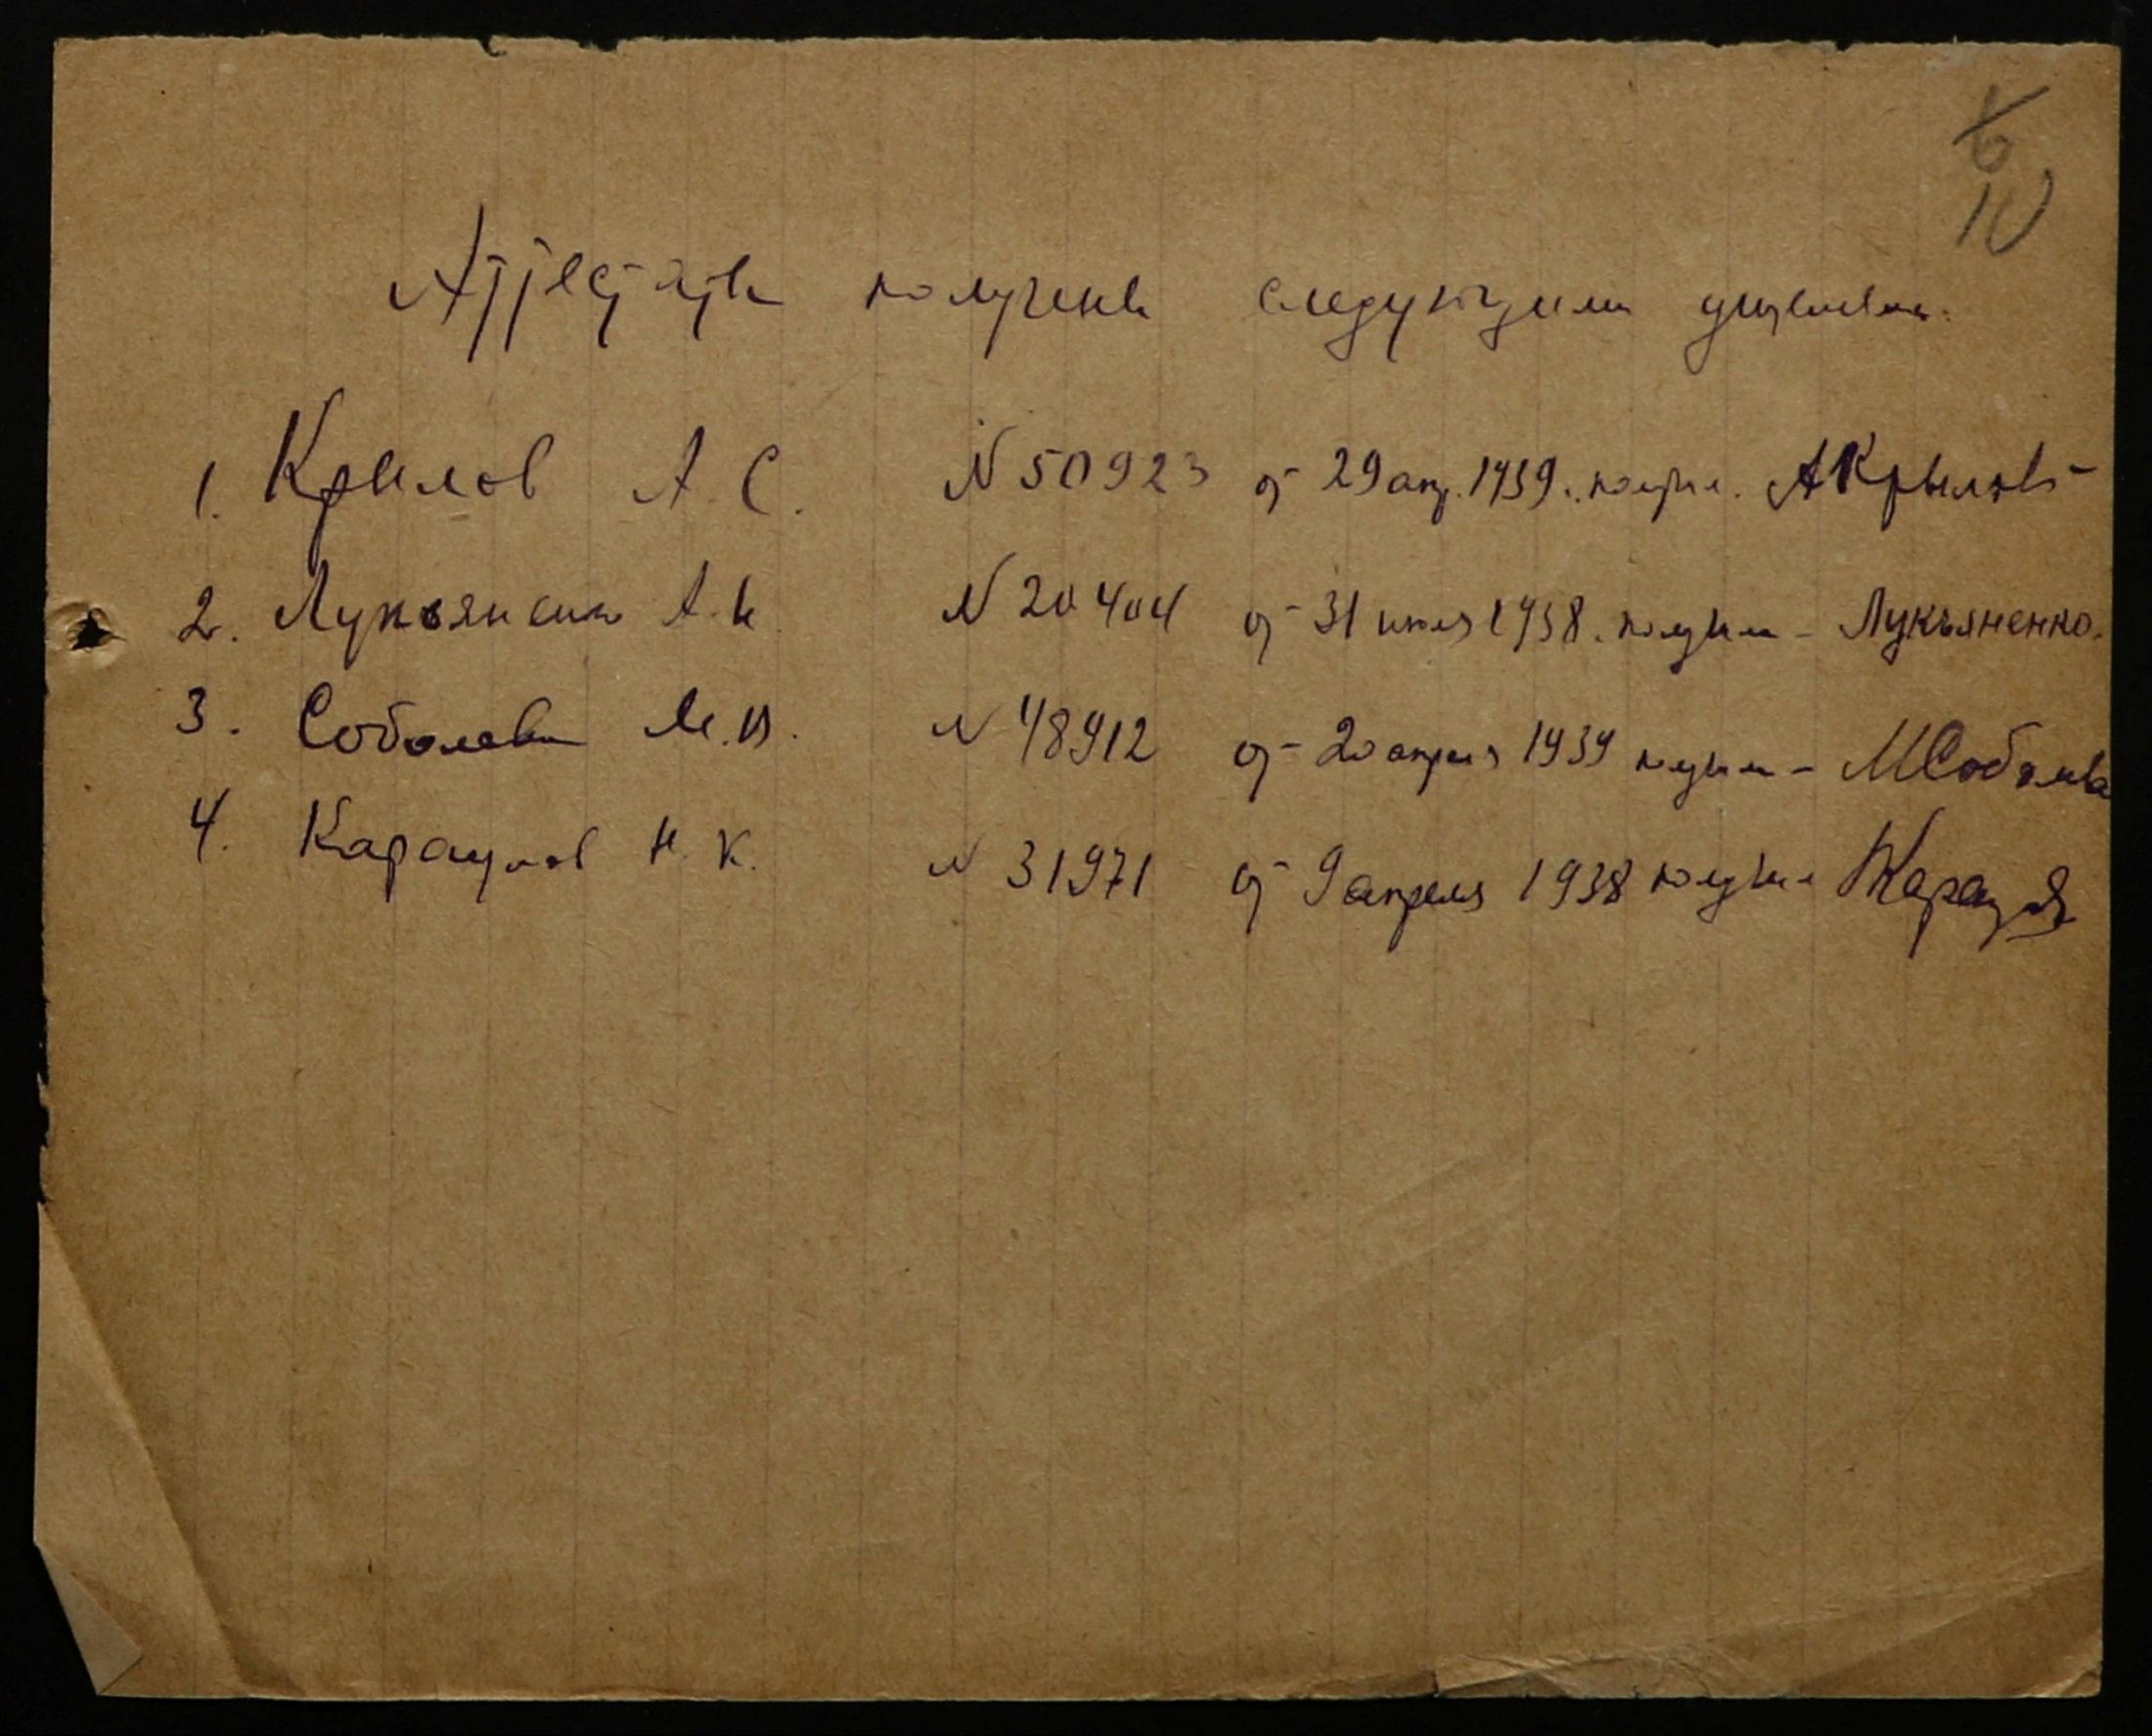 6
10
Аттестаты получены следующими учителями.
1. Крылов А. С. N 50923 от 29 апр. 1939. получил. АКрылов
2. Лукьяненко А. И. N 20404 от 31 июля 1938. получил - Лукьяненко.
3. Соболева М. И. N 48912 от 20 апреля 1939 получила - МСоболева
4. Караулов Н. К. N 31971 от 9 апреля 1938 получил Караулов